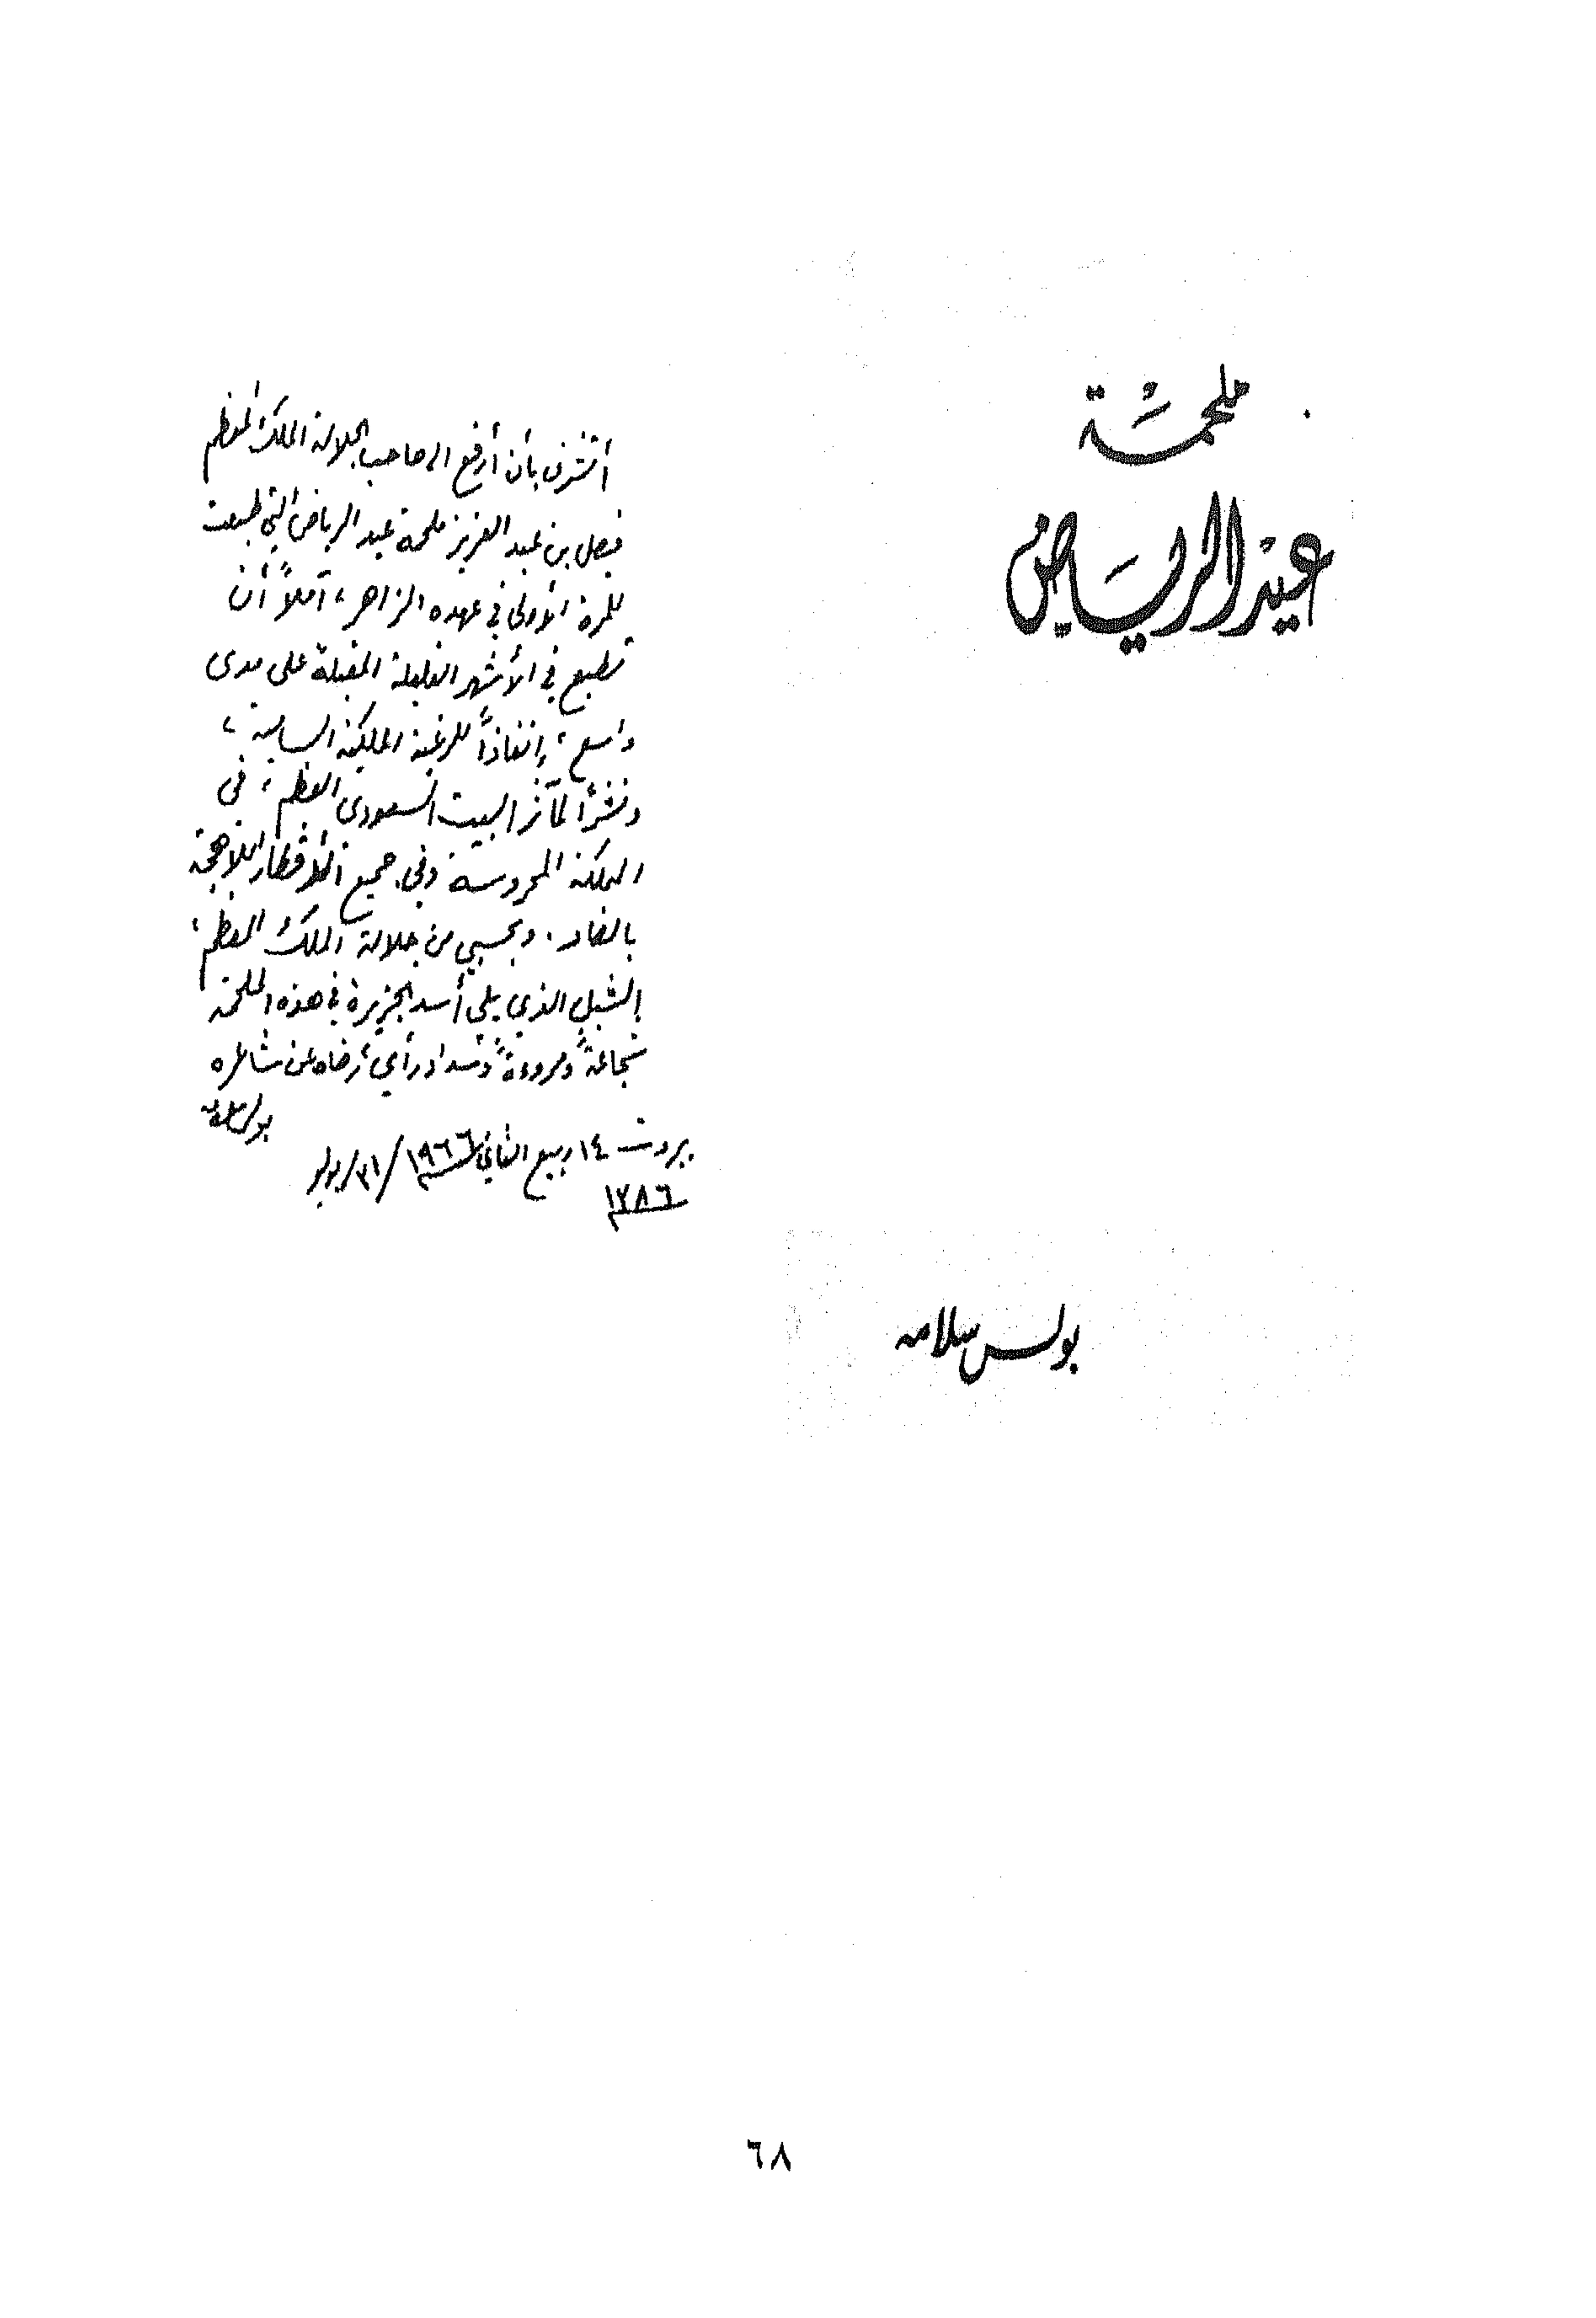 ملحمة
عيد الرياض
بولس سلامه
أتشرف بأن أرفع الى صاحب الجلالة الملك المعظم
فيصل بن عبد العزيز ملحمة عيد الرياض التي طبعت
للمرة الأولى في عهده الزاهر، آملاً أن
تطبع في الأشهر القليلة المقبلة على مدى
واسع، إنفاذاً للرغبة الملكية السامية،
ونشراً لمآثر البيت السعودي العظيم، في
المملكة المحروسة وفي جميع الأقطار اللاهجة
بالضاد. وبحسبي من جلالة الملك المعظم،
الشبل الذي يلي أسد الجزيرة في هذه الملحمة
شجاعةً ومروءةً وسداد رأي، رضاه عن شاعره
بولس سلامه
بيروت ١٤ ربيع الثاني ١٩٦٦/٣١/يوليو
١٣٨٦
٦٨